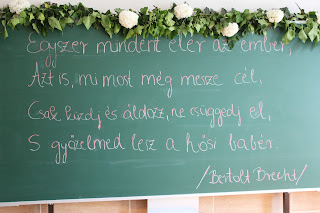 Egyszer mindent elér az ember,
Azt is, mi most még messze cél,
Csak küzdj és áldozz, ne csüggedj el,
S győzelmed lesz a hősi babér.
/Bertolt Brecht/